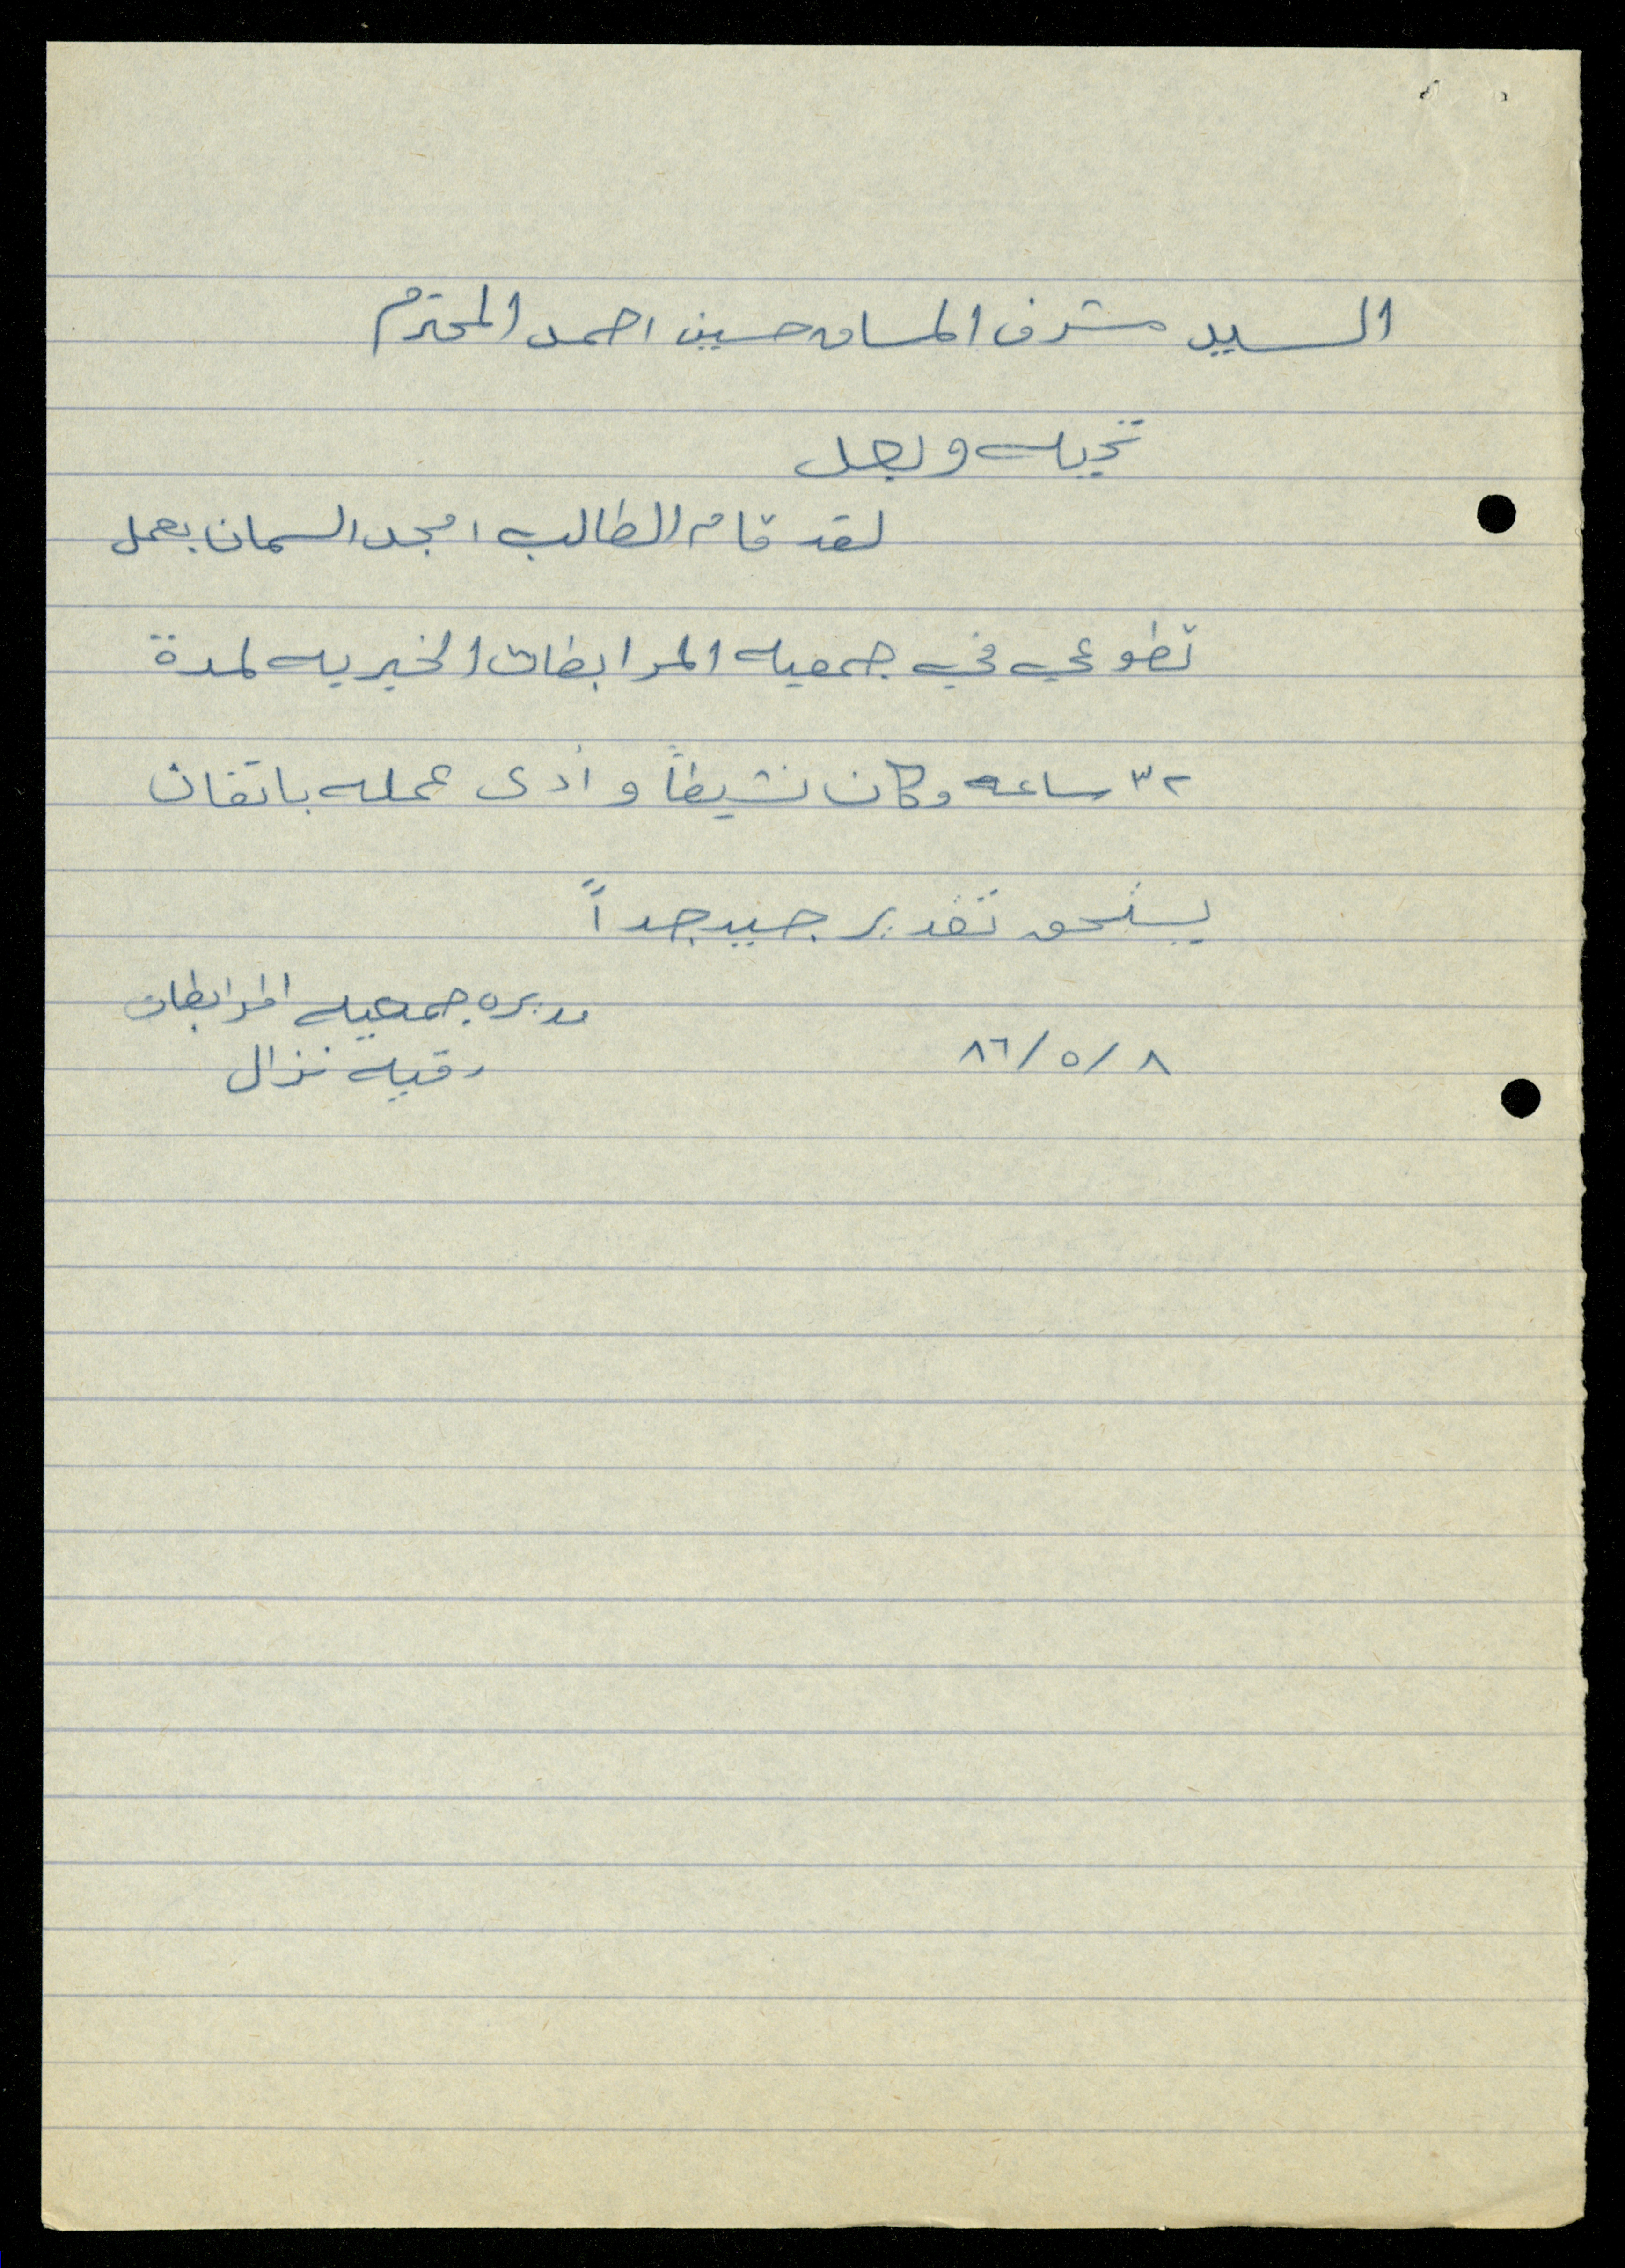 السيد مشرف المساق حسين احمد المحترم
تحيه وبعد
لقد قام الطالب امجد السمان بعمل
تطوعي في جمعيه المرابطات الخيريه لمدة
٣٢ ساعه وكان نشيطاً و أدى عمله باتقان
يستحق تقدير جيد جداً
مديره جمعيه المرابطات
رقيه نزال
٨٦/٥/٨